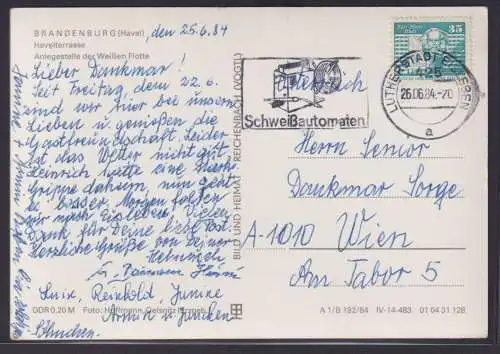 BRANDENBURG (Havel)
Havelterrasse
Anlegestelle der Weißen Flotte
, den 25.6.84
Lieber Dankmar!
Seit Freitag, dem 22.6.
sind wir hier bei unseren
Lieben u. genießen die
Gastfreundschaft. Leider
ist das Wetter nicht gut.
Heinrich hatte eine starke
Grippe daheim, nun geht
es besser. Morgen fahren
wir nach Eisleben. Vielen
Dank für Deine liebe Post.
Herzliche Grüße von Deiner
Reinhold, Janine
Armin u.
DDR 0,20 M Foto: Hoffmann, Oelsnitz (Erzgeb.)
BILD UND HEIMAT REICHENBACH (VOGTL)
Schweißautomaten
LUTHERSTADT EISLEBEN
26.06.84.-20
a
35
Herrn Senior
Dankmar Sorge
A-1010 Wien
Am Tabor 5
A 1/B 192/84 IV-14-483 01 04 31 128